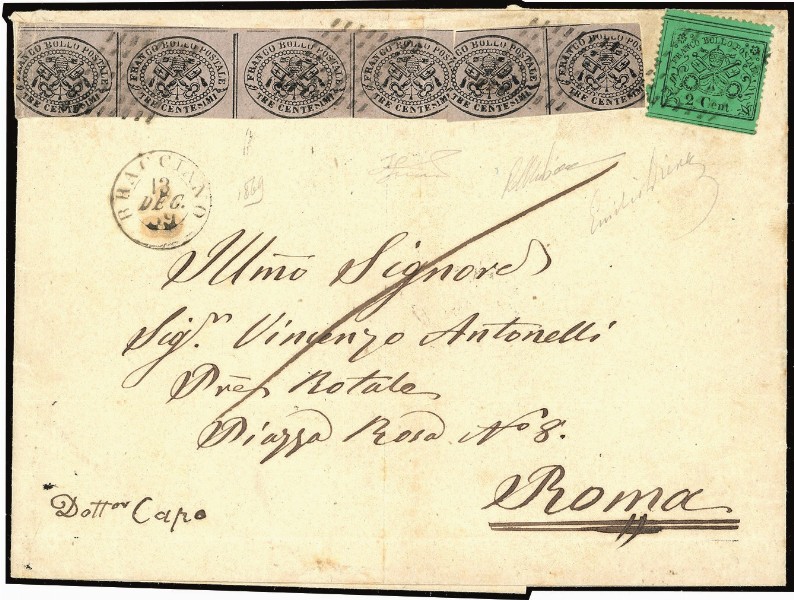 FRANCO BOLLO POSTALE TRE CENTESIMI
FRANCO BOLLO POSTALE TRE CENTESIMI
FRANCO BOLLO POSTALE TRE CENTESIMI
FRANCO BOLLO POSTALE TRE CENTESIMI
FRANCO BOLLO POSTALE TRE CENTESIMI
FRANCO BOLLO POSTALE TRE CENTESIMI
FRANCO BOLLO POSTALE
2 Cent
BRACCIANO
13
DEC.
69
1869
Emilio Diena
Illmo Signore
Sigr. Vincenzo Antonelli
Pre Rotale
Piazza Rosa No 8.
Roma
Dottor Capo